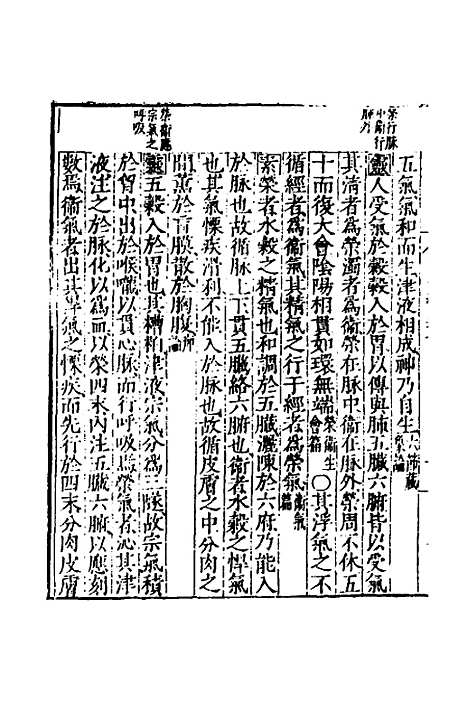 五氣氣和而生津液相成神乃自生六節藏象論
榮行脉中衞行脉外
靈人受氣於穀穀入於胃以傳與肺五臟六腑皆以受氣
其清者為榮濁者為衞榮在脉中衞在脉外榮周不休五
十而復大會陰陽相貫如環無端榮衞生會篇〇其浮氣之不
循經者為衞氣其精氣之行于經者為榮氣衞氣篇
素榮者水穀之精氣也和調於五臟灑陳於六府乃能入
於脉也故循脉上下貫五臟絡六腑也衞者水穀之悍氣
也其氣慓疾滑利不能入於脉也故循皮膚之中分肉之
間熏於肓膜散於胸腹痹論
榮衞應宗氣之呼吸
靈五穀入於胃也其糟粕津液宗氣分為三隧故宗氣積
於胷中出於喉嚨以貫心脉而行呼吸焉榮氣者沁其津
液注之於脉化以為血以榮四末內注五臟六腑以應刻
數焉衞氣者出其悍氣之慓疾而先行於四末分肉皮膚